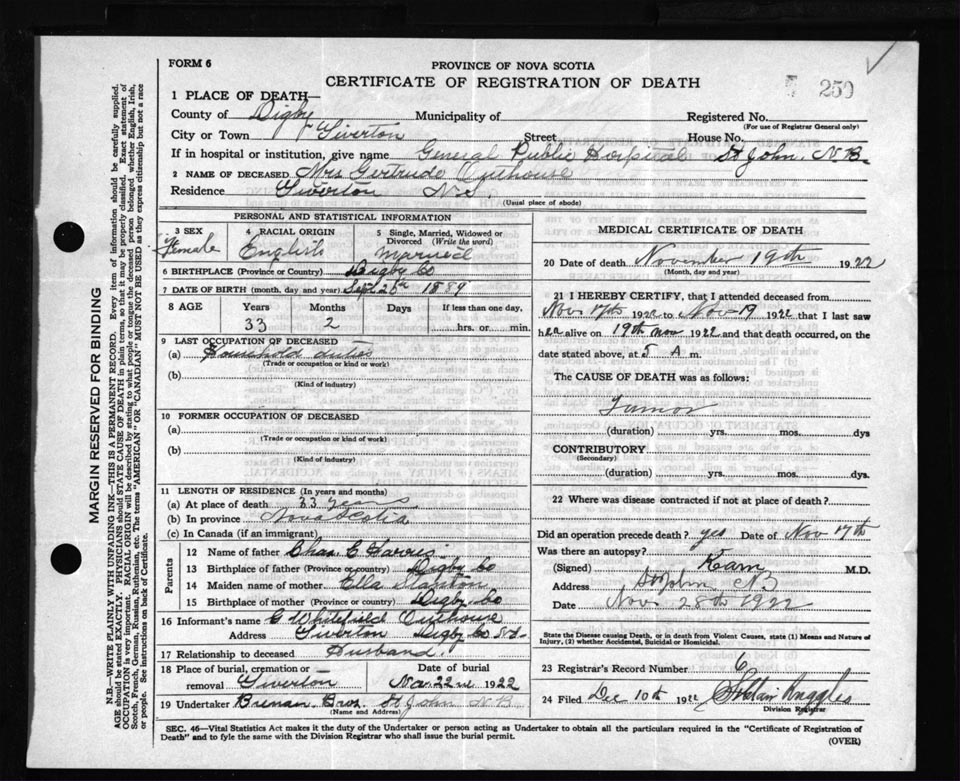 FORM 6
PROVINCE OF NOVA SCOTIA
CERTIFICATE OF REGISTRATION OF DEATH
250
1 PLACE OF DEATH—
County of Digby Municipality of Registered No.
(For use of Registrar General only)
City or Town Tiverton Street House No.
If in hospital or institution, give name General Public Hospital St John, N.B.
2 NAME OF DECEASED Mrs Gertrude Outhouse
Residence Tiverton N.S.
(Usual place of abode)
PERSONAL AND STATISTICAL INFORMATION
3 SEX
Female
4 RACIAL ORIGIN
English
5 Single, Married, Widowed or Divorced (Write the word)
Married
6 BIRTHPLACE (Province or Country) Digby Co
7 DATE OF BIRTH (month, day and year) Sept 1889
8 AGE Years Months Days If less than one day,
33 2 hrs. or min.
9 LAST OCCUPATION OF DECEASED
(a) Household duties
(Trade or occupation or kind of work)
(b)
(Kind of industry)
10 FORMER OCCUPATION OF DECEASED
(a)
(Trade or occupation or kind of work)
(b)
(Kind of industry)
11 LENGTH OF RESIDENCE (In years and months)
(a) At place of death 33 years
(b) In province Nova Scotia
(c) In Canada (if an immigrant)
Parents
12 Name of father Chas. E Harris
13 Birthplace of father (Province or country) Digby Co
14 Maiden name of mother Ella Stanton
15 Birthplace of mother (Province or country) Digby Co
16 Informant's name G Whitefield Outhouse
Address Tiverton Digby Co
17 Relationship to deceased Husband
18 Place of burial, cremation or removal Tiverton
Date of burial Nov. 22nd 1922
19 Undertaker Brenan Bros. St John N.B.
(Name and Address)
MEDICAL CERTIFICATE OF DEATH
20 Date of death November 19th 1922
(Month, day and year)
21 I HEREBY CERTIFY, that I attended deceased from
Nov 17th 1922 to Nov 19 1922 that I last saw
her alive on 19th Nov 1922 and that death occurred, on the
date stated above, at 5 A m.
The CAUSE OF DEATH was as follows:
Tumor
(duration) yrs. mos. dys
CONTRIBUTORY
(Secondary)
(duration) yrs. mos. dys.
22 Where was disease contracted if not at place of death?
Did an operation precede death? yes Date of Nov 17th
Was there an autopsy?
(Signed) M.D.
Address St John NB
Date Nov 28th 1922
State the Disease causing Death, or in death from Violent Causes, state (1) Means and Nature of
Injury, (2) whether Accidental, Suicidal or Homicidal.
23 Registrar's Record Number 6
24 Filed Dec 10th 1922 Ruggles
Division Registrar
SEC. 46—Vital Statistics Act makes it the duty of the Undertaker or person acting as Undertaker to obtain all the particulars required in the "Certificate of Registration of
Death" and to fyle the same with the Division Registrar who shall issue the burial permit.
(OVER)
MARGIN RESERVED FOR BINDING
N.B.—WRITE PLAINLY WITH UNFADING INK—THIS IS A PERMANENT RECORD. Every item of information should be carefully supplied.
AGE should be stated EXACTLY. PHYSICIANS should STATE CAUSE OF DEATH in plain terms, so that it may be properly classified. Exact statement of
OCCUPATION is very important. RACIAL ORIGIN will be described by stating to what people or tongue the deceased person belonged whether English, Irish,
Scotch, French, German, Russian, Ruthenian, etc. The terms "AMERICAN" OR "CANADIAN" MUST NOT BE USED as they express citizenship but not a race
or people. See instructions on back of Certificate.